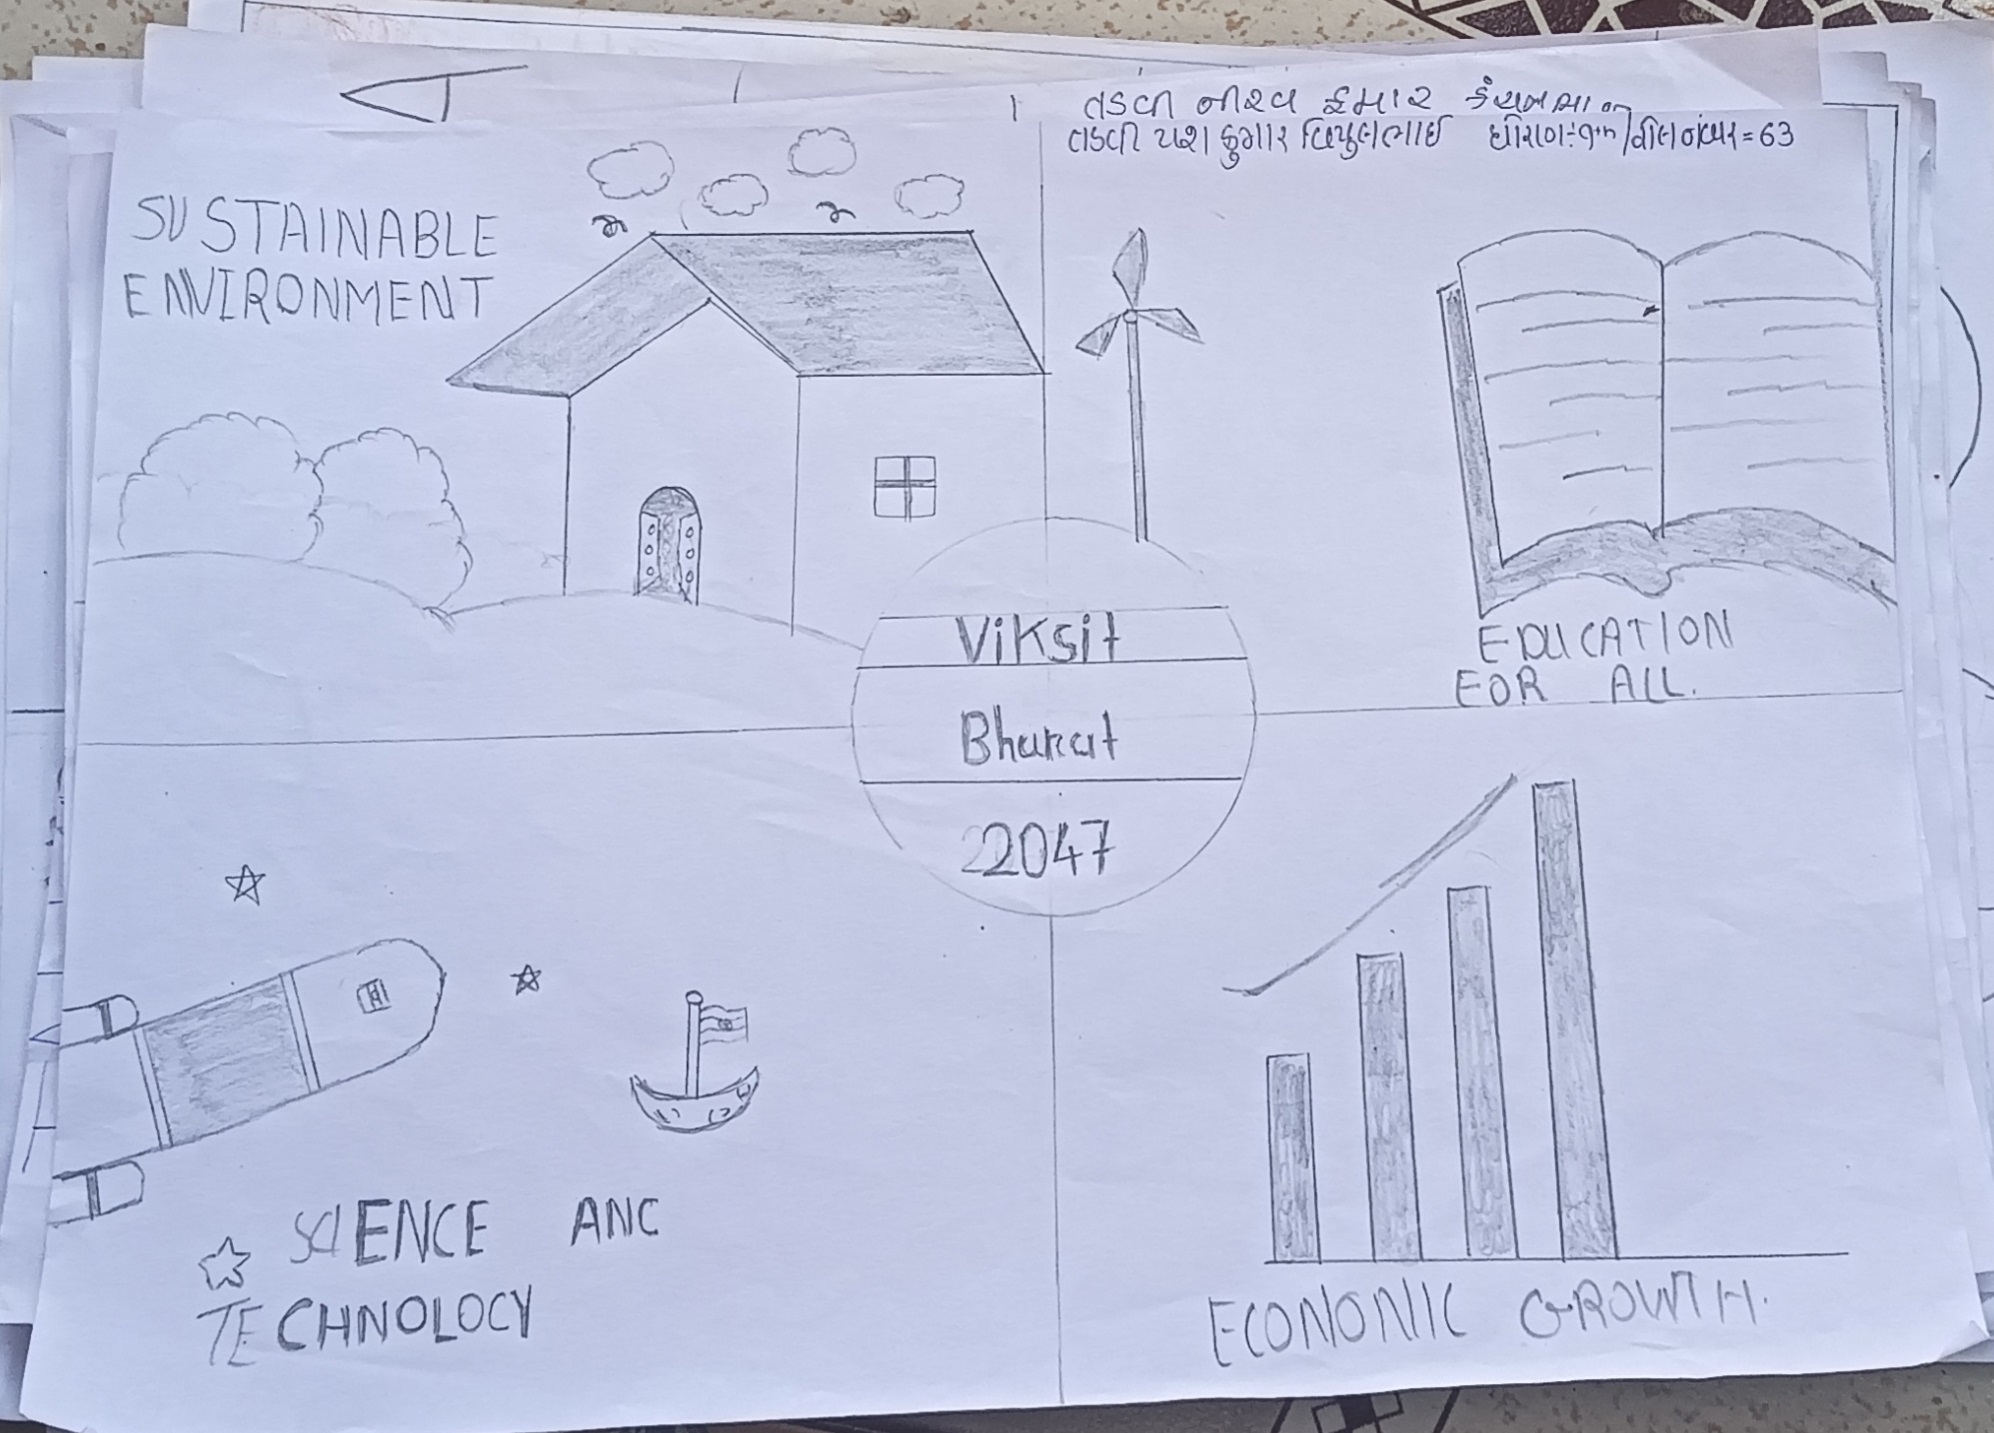 તડવી
તડવી યશ કુમાર વિપુલભાઈ ધોરણ:-9th/રોલ નંબર = 63
SUSTAINABLE
ENVIRONMENT
EDUCATION
FOR ALL.
Viksit
Bharat
2047
SCIENCE ANC
TECHNOLOCY
ECONONIC GROWTH.